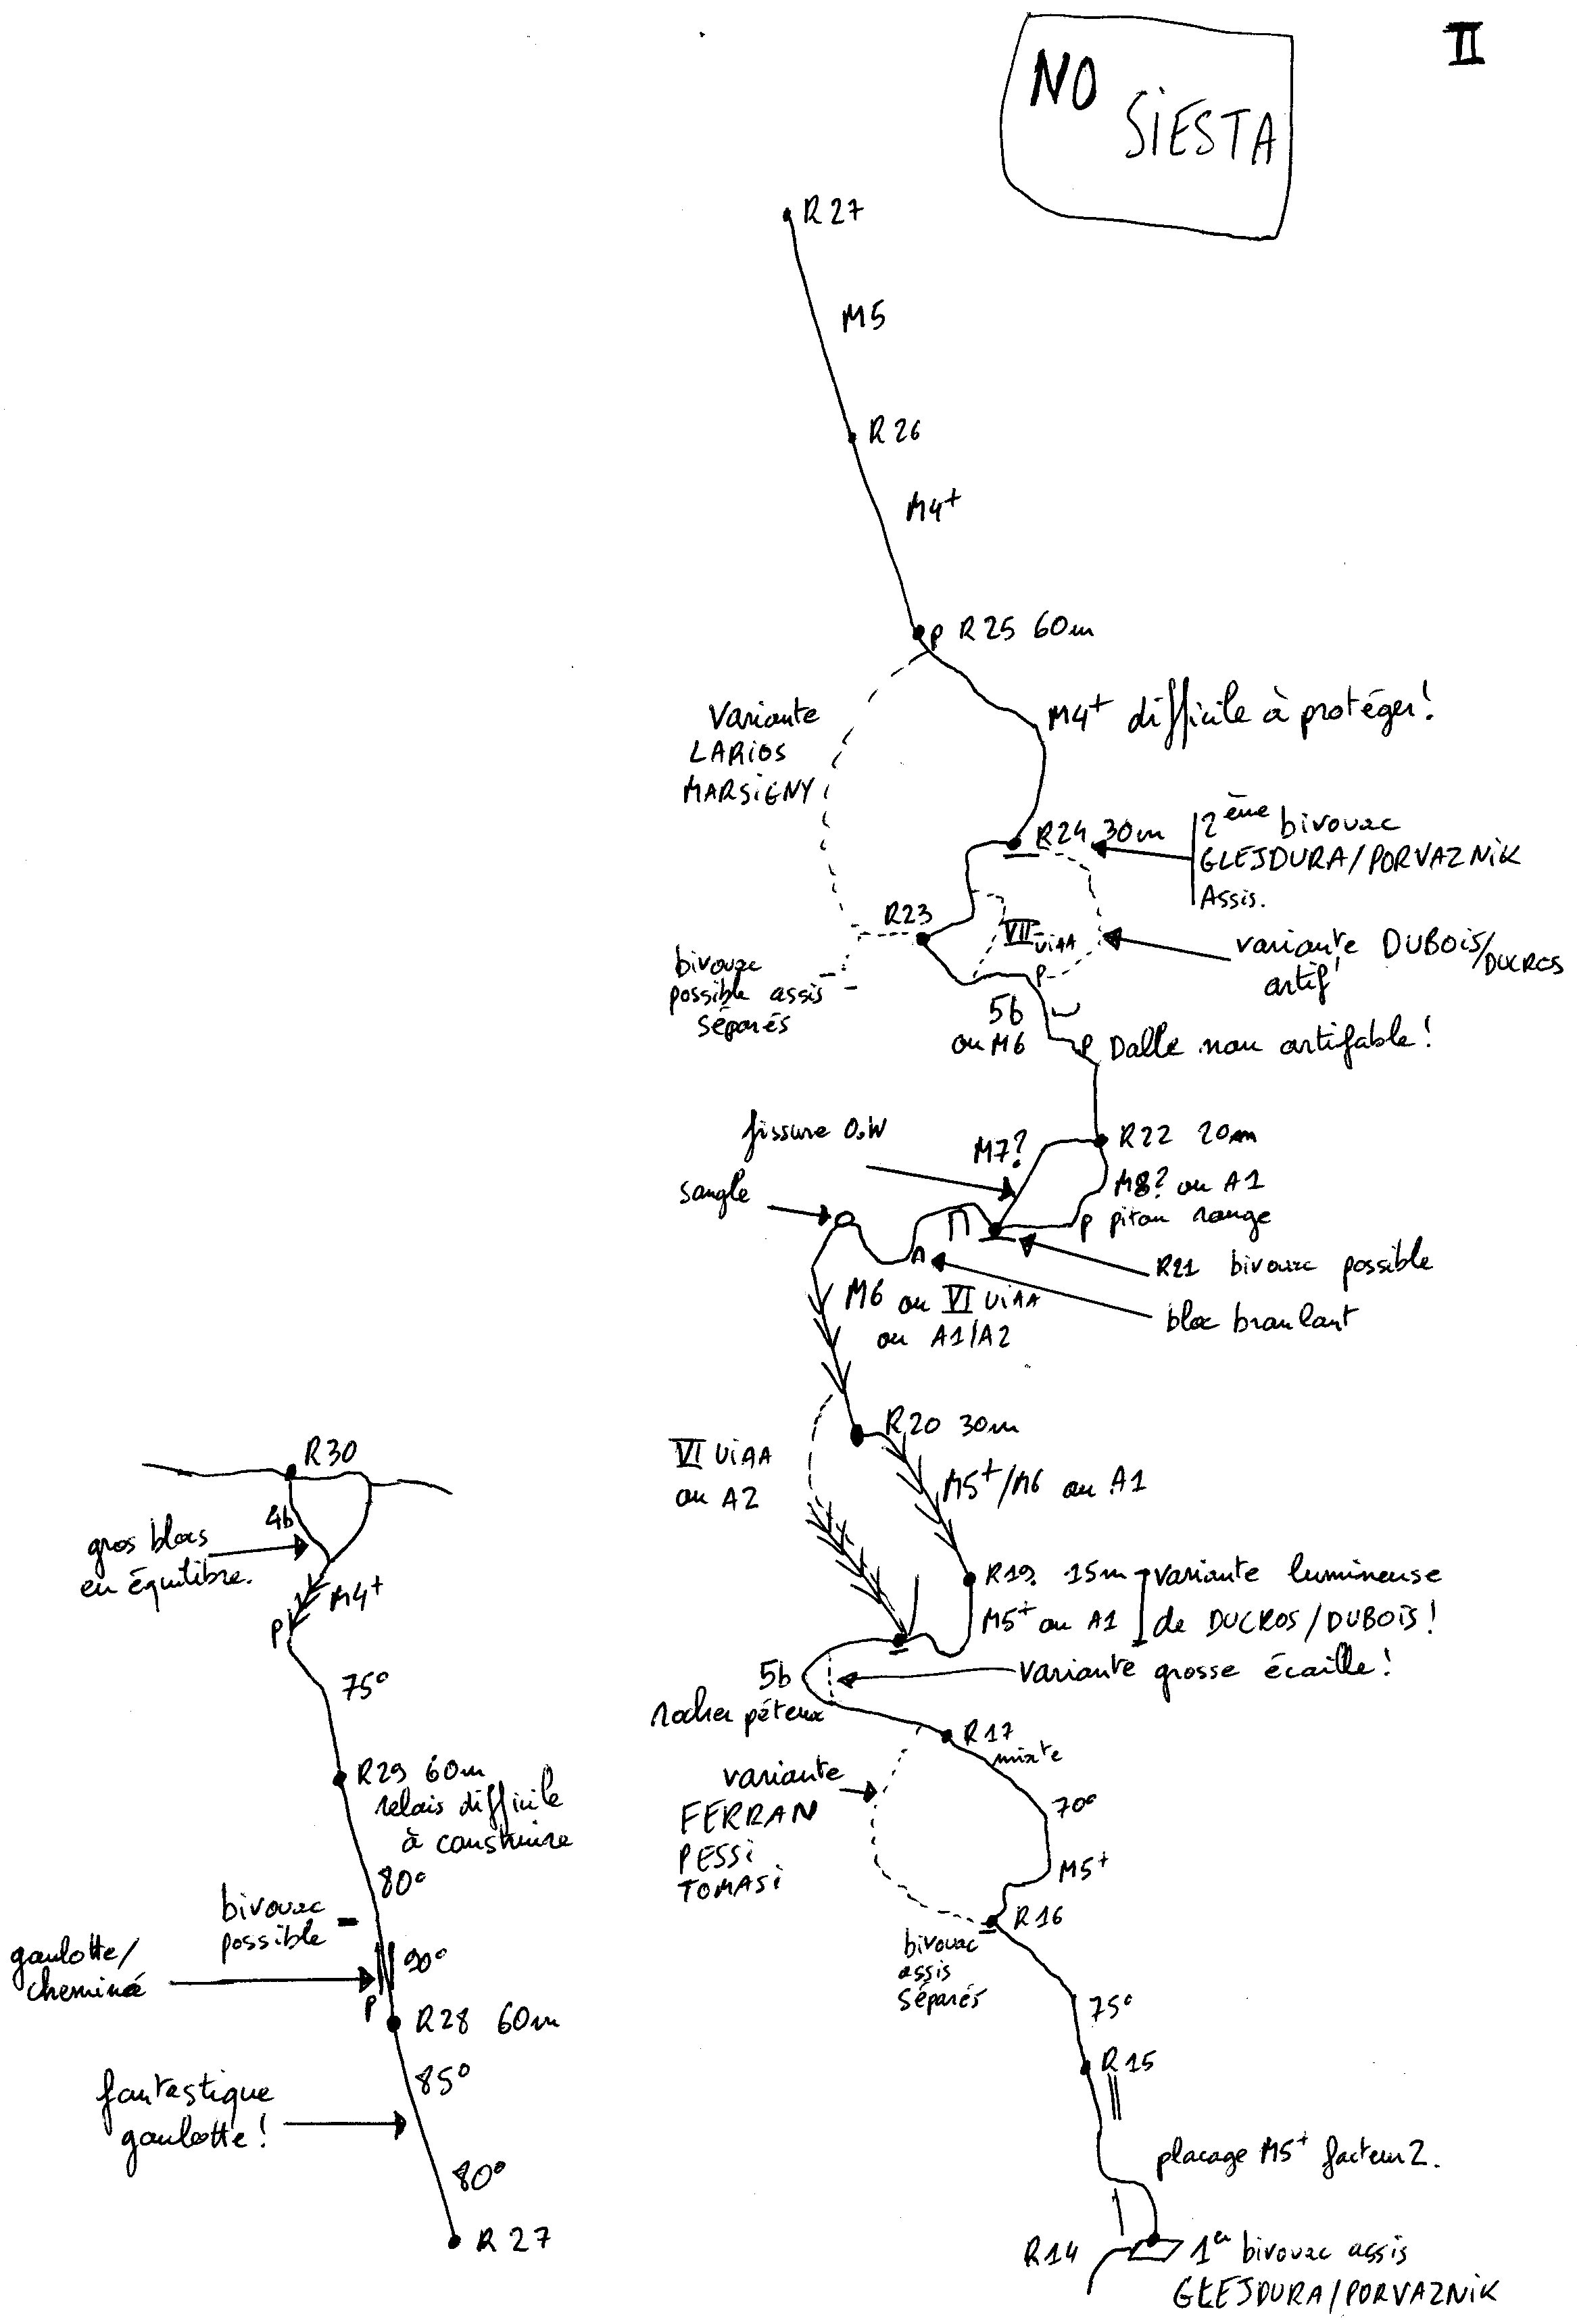 II
NO
SiESTA
R27
M5
R26
M4+
p R25 60m
Variante
LARiOS
MARSiGNY
M4+ difficile à protéger!
R24 30m
2ème bivouac
GLEJDURA/PORVAZNiK
Assis.
R23
VII UiAA
variante DUBOiS/DUCROS
artif
bivouac
possible assis
séparés
p
5b
ou M6
p Dalle non artifable!
fissure O.W
M7?
R22 20m
M8? ou A1
sangle
p piton rouge
R21 bivouac possible
M6 ou VI UiAA
ou A1/A2
bloc branlant
R20 30m
VI UiAA
ou A2
M5+/M6 ou A1
R19 15m
variante lumineuse
M5+ ou A1
de DUCROS/DUBOiS!
5b
variante grosse écaille!
rocher péteux
R17
mixte
variante
FERRAN
PESSi
TOMASi
70°
M5+
R16
bivouac
assis
séparés
75°
R15
placage M5+ facteur 2.
R14
1er bivouac assis
GLEJDURA/PORVAZNiK
R30
4b
gros blocs
en équilibre.
M4+
p
75°
R29 60m
relais difficile
à construire
80°
bivouac
possible
goulotte/
cheminé
90°
p
R28 60m
85°
fantastique
goulotte!
80°
R27